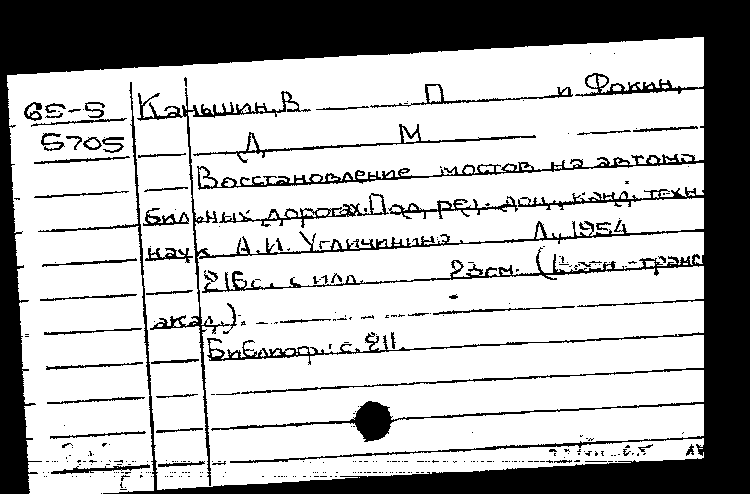 65-5 Каньшин, В П и Фокин,
5705 Д М
Восстановление мостов на автомо
бильных дорогах. Под ред. доц., канд. техн.
наук А.И. Угличинина. Л., 1954
216с. с илл. 23см. (Воен.-трансп
акад.).
Библиогр.: с. 211.